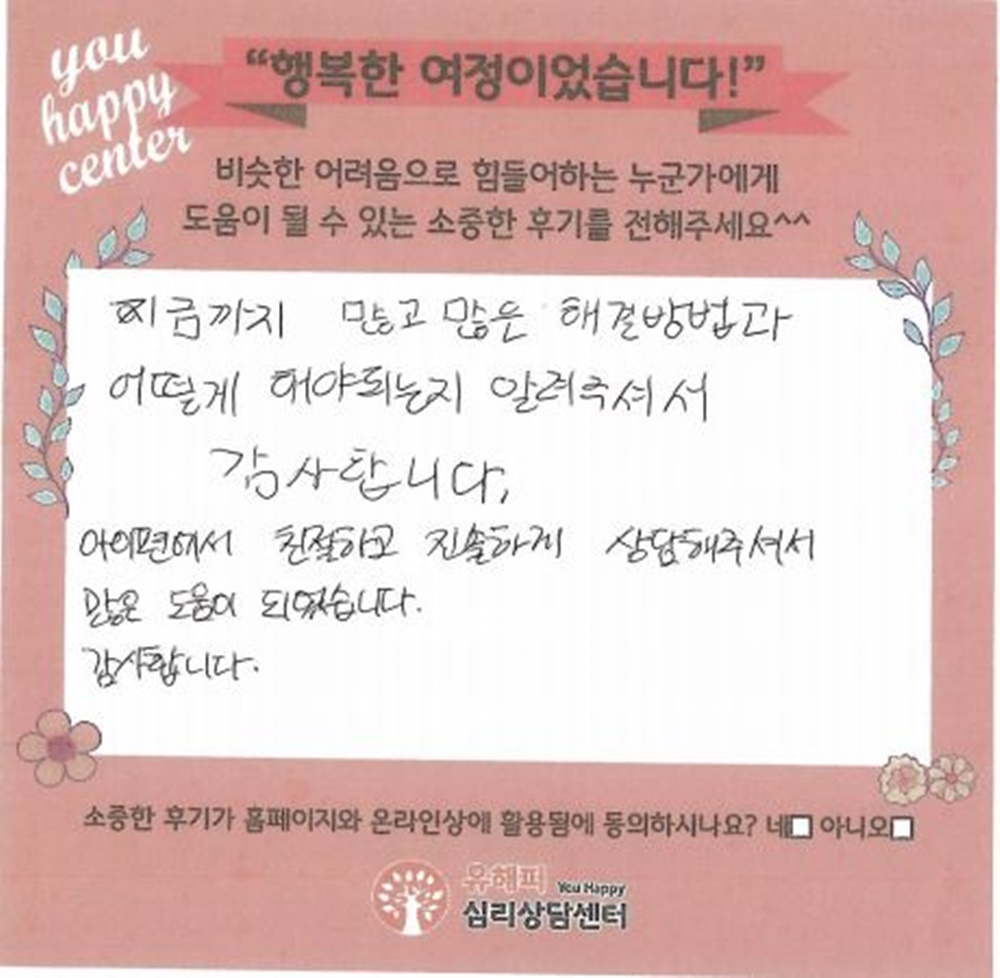 you
happy
center
“행복한 여정이었습니다!”
비슷한 어려움으로 힘들어하는 누군가에게
도움이 될 수 있는 소중한 후기를 전해주세요^^
지금까지 많고 많은 해결방법과
어떻게 해야되는지 알려주셔서
감사합니다,
아이편에서 친절하고 진솔하게 상담해주셔서
많은 도움이 되었습니다.
감사합니다.
소중한 후기가 홈페이지와 온라인상에 활용됨에 동의하시나요? 네□ 아니오□
유해피 You Happy
심리상담센터